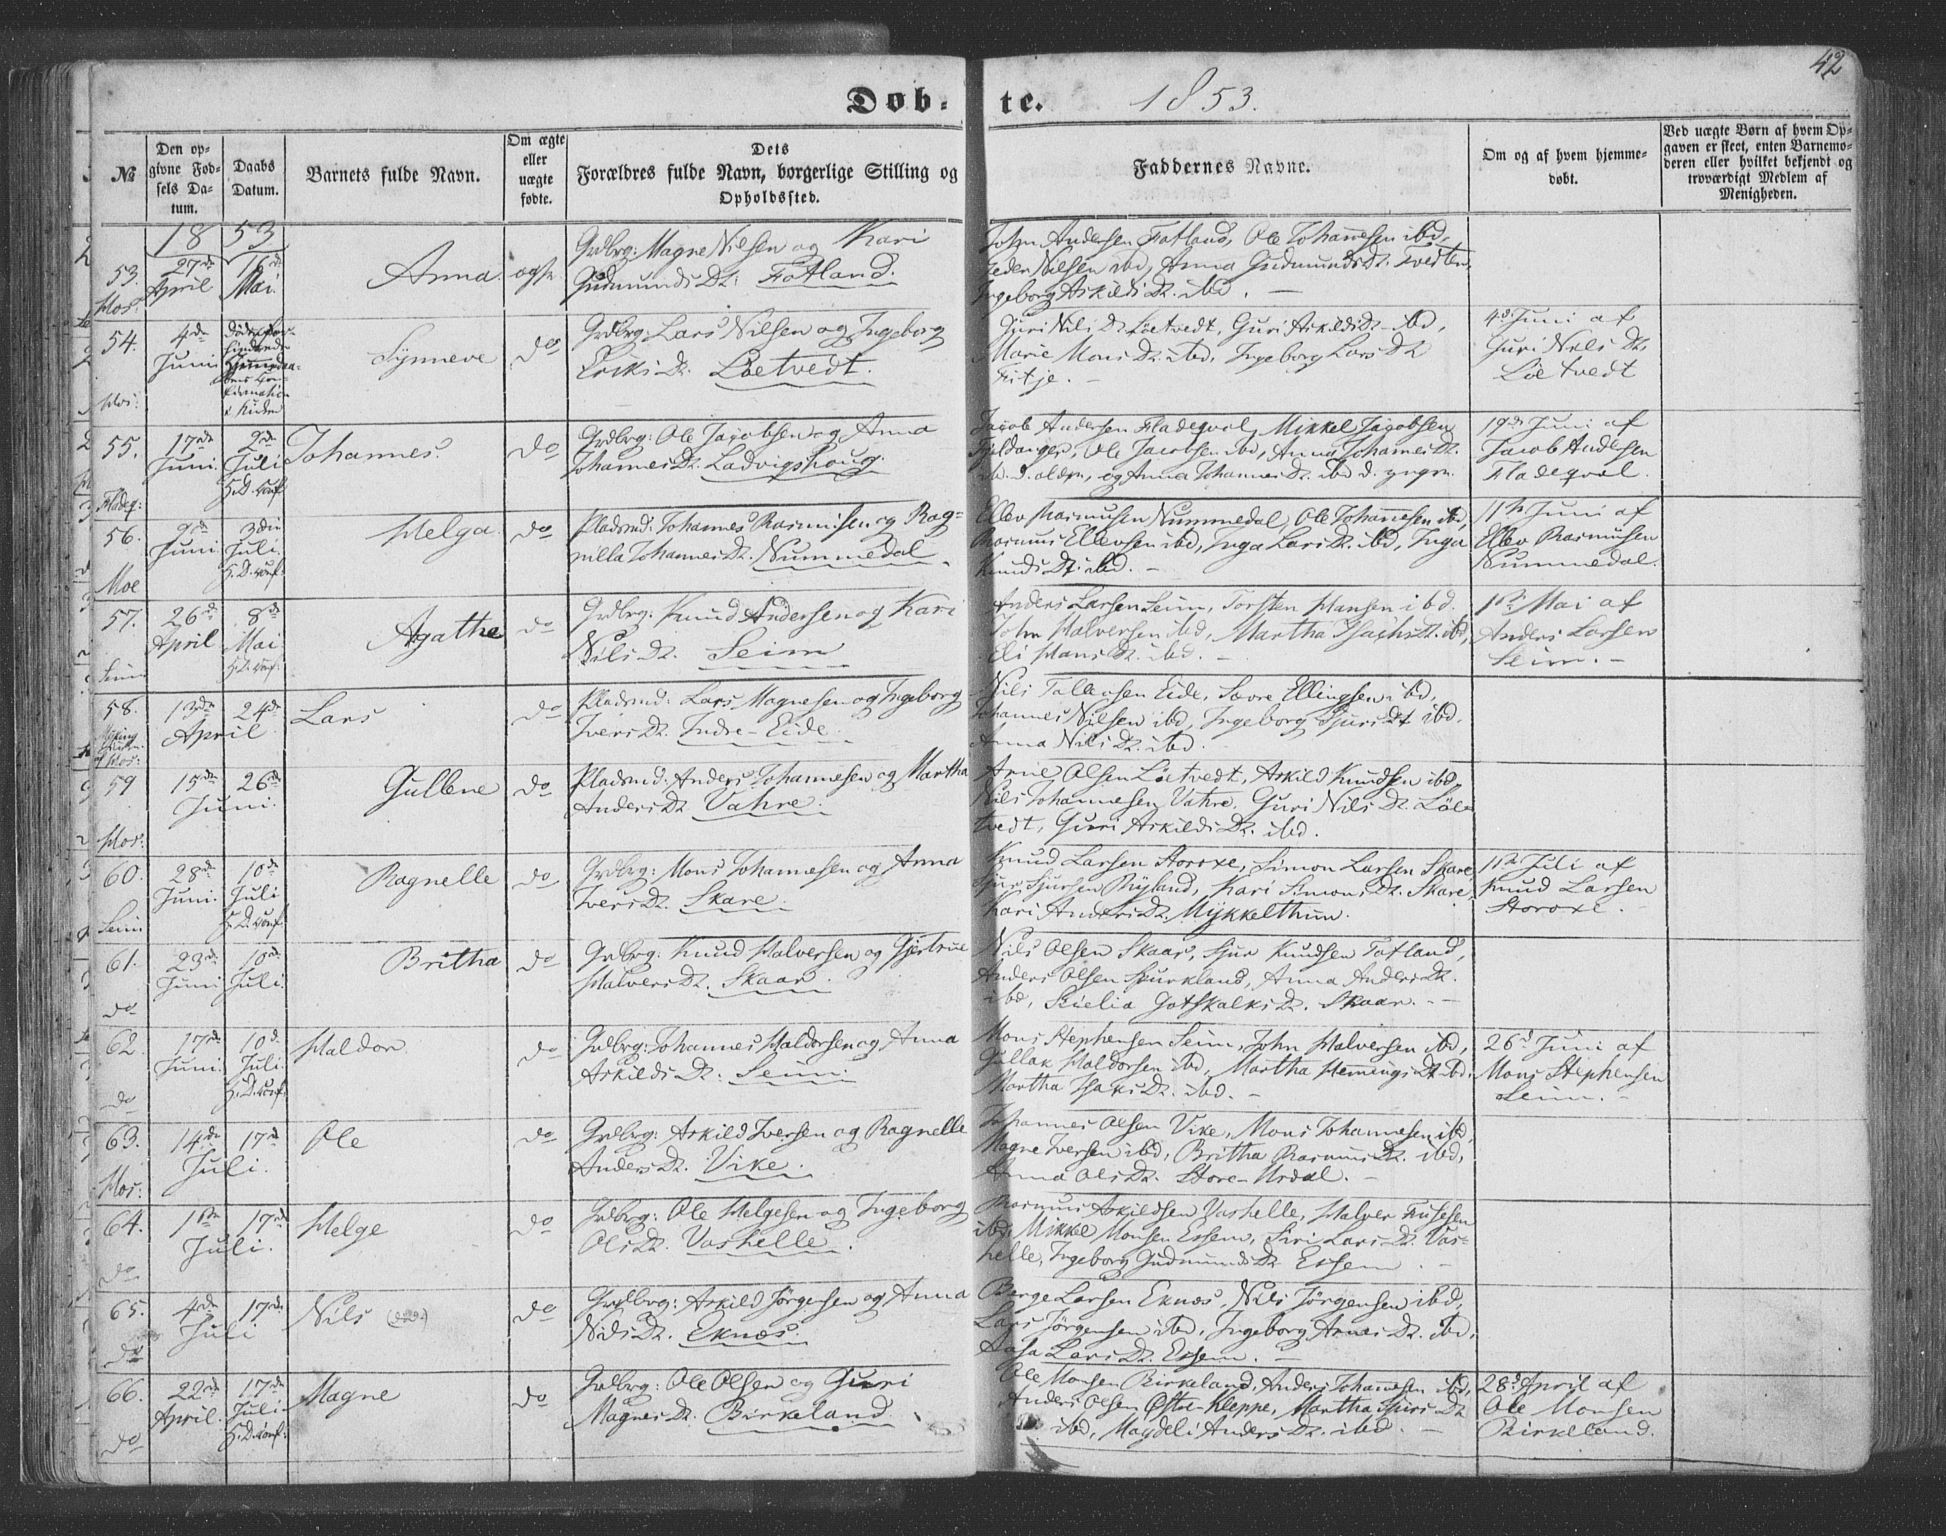 42
Døb-te. 1853.
№
Den op-
givne Fød-
sels Da-
tum.
Daabs
Datum.
Barnets fulde Navn.
Om ægte
eller
uægte
fødte.
Dets
Forældres fulde Navn, borgerlige Stilling og
Opholdssted.
Faddernes Navne.
Om og af hvem hjemme-
døbt.
Ved uægte Børn af hvem Op-
gaven er skeet, enten Barnemo-
deren eller hvilket bekjendt og
troværdigt Medlem af
Menigheden.
1853
53.
Hos:
27de
April
16de
Mai
Anna
ægte
Grdbrg: Magne Nilsen og Kari
Gudmunds Dr. Fotland.
John Andersen Fotland, Ole Johannesen ibd,
Peder Nilsen ibd, Anna Gudmunds Dr. Tvedten,
Ingeborg Askilds Dr. ibd.
54.
Hos:
4de
Juni
Synneve
do
Grdbrg: Lars Nilsen og Ingeborg
Eriks Dr. Löetvedt.
Guri Nils Dr. Löetvedt, Guri Askilds Dr. ibd,
Marie Mons Dr. ibd, Ingeborg Lars Dr
Fitje.
4de Juni af
Guri Nils Dr.
Löetvedt
55.
Fladeq:
17de
Juni
2de
Juli
H.D. Conf.
Johannes.
do
Grdbrg: Ole Jacobsen og Anna
Johannes Dr. Ladvigshoug.
Jacob Andersen Fladeqval, Mikkel Jacobsen
Ole Jacobsen ibd, Anna Johannes Dr.
ibd. d. ældre, og Anna Johannes Dr. ibd d. yngre.
19de Juni af
Jacob Andersen
Fladeqval.
56.
Moe
9de
Juni
3die
Juli
H.D. Conf.
Helga
do
Pladsmd: Johannes Rasmusen og Rag-
nilla Johannes Dr. Nummedal.
Ellev Rasmusen Nummedal, Ole Johannesen ibd,
Rasmus Ellevsen ibd, Inga Lars Dr. ibd, Inga
Knuds Dr. ibd.
11te Juni af
Ellev Rasmusen
Nummedal.
57.
Seim
26de
April
8de
Mai
H.D. Conf.
Agatha
do
Grdbrg: Knud Andersen og Kari
Nils Dr. Seim
Anders Larsen Seim, Torsten Hansen ibd.
John Halversen ibd, Martha Isachs Dr. ibd,
Eli Hans Dr. ibd.
1ste Mai af
Anders Larsen
Seim.
58.
13de
24de
April
Lars
do
Pladsmd: Lars Magnesen og Ingeborg
Ivers Dr. Indre-Eide.
Nils Tollevsen Eide, Sævre Ellingsen ibd,
Johannes Nilsen ibd, Ingeborg Sjurs Dr ibd.
Anna Nils Dr. ibd.
59
Hos:
15de
26de
Juni
Gullene
do
Pladsmd: Anders Johannesen og Martha
Anders Dr. Vahre.
Arne Olsen Löetvedt, Askild Knudsen ibd,
Nils Johannesen Vahre, Guri Nils Dr. Löe-
tvedt, Guri Askilds Dr. ibd.
60.
Seim
28de
Juni
10de
Juli
H.D. Conf.
Ragnelle
do
Grdbrg: Mons Johannesen og Anna
Ivers Dr. Skare.
Knud Larsen Storoxe, Simon Larsen Skare,
Sjur Sjursen Ryland, Kari Simons Dr. Skare,
Kari Anders Dr. Mykkelthun.
11te Juli af
Knud Larsen
Storoxe.
61.
do
23de
Juni
10de
Juli.
Britha
do
Grdbrg: Knud Halversen og Gjertrue
Halvers Dr. Skaar.
Nils Olsen Skaar, Sjur Knudsen Fotland,
Anders Olsen Spurkland, Anna Anders Dr.
ibd, Gotskalks Dr. Skaar.
62.
do
17de
Juni
10de
Juli
H.D. Conf.
Haldor
do
Grdbrg: Johannes Haldorsen og Anna
Askilds Dr. Seim.
Mons Stephensen Seim, John Halversen ibd,
Gullak Haldorsen ibd, Martha Hemings Dr ibd.
Martha Isaks Dr. ibd.
26de Juni af
Mons Stephensen
Seim.
63.
Hos:
14de
17de
Juli.
Ole
do
Grdbrg: Askild Iversen og Ragnelle
Anders Dr. Vike.
Johannes Olsen Vike, Mons Johannesen ibd,
Magne Iversen ibd, Britha Rasmus Dr. ibd,
Anna Ols Dr. Store-Urdal.
64.
do
1ste
17de
Juli.
Helge
do
Grdbrg: Ole Helgesen og Ingeborg
Ols Dr. Vashelle.
Rasmus Askildsen Vashelle, Halver
ibd, Mikkel Monsen Essem, Siri Lars Dr. Vas-
helle, Ingeborg Gudmunds Dr Essem.
65.
do
4de
17de
Juli
Nils
do
Grdbrg: Askild Jörgensen og Anna
Nils Dr. Eknæs.
Børge Larsen Eknæs, Nils Jörgensen ibd,
Lars Jörgensen ibd, Ingeborg Arnes Dr. ibd,
Aasa Lars Dr. Essem.
66.
do
22de
April.
17de
Juli
H.D. Conf.
Magne
do
Grdbrg: Ole Olsen og Guri
Magnes Dr. Birkeland.
Ole Monsen Birkeland, Anders Johannesen ibd,
Anders Olsen Østre-Kleppe, Martha Sjurs Dr
ibd, Maydeli Anders Dr. ibd.
28de April af
Ole Monsen
Birkeland.